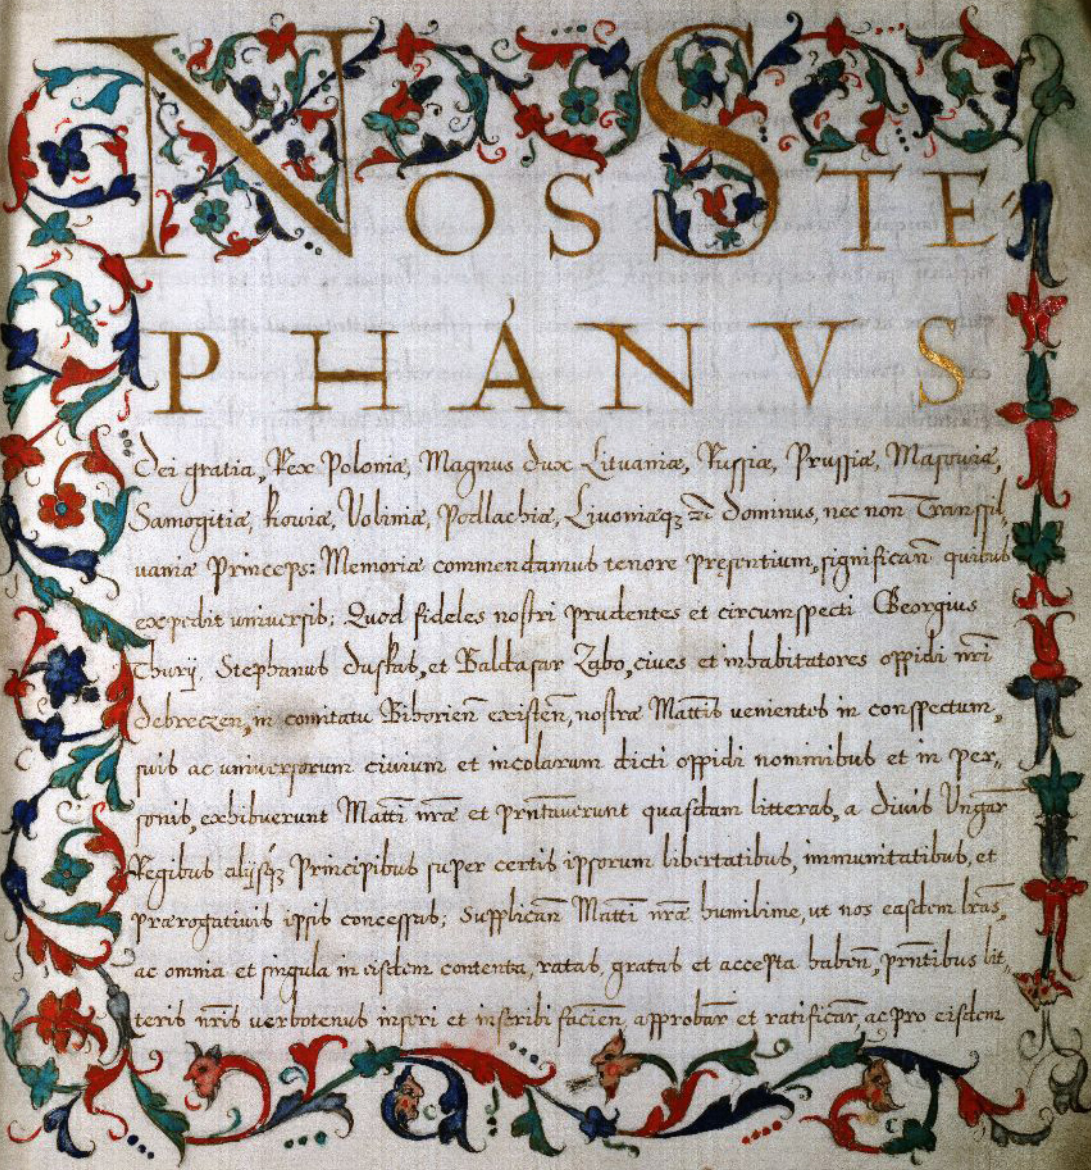 NOS STE
PHÁNVS
Dei gratia, Rex Poloniæ, Magnus dux Lituaniæ, Russiæ, Prussiæ, Masouiæ,
Samogitiæ, Kiouiæ, Voliniæ, Podlachiæ, Livoniæqz dominus, nec non Transsil,
uaniæ Princeps: Memoriæ commendamus tenore pręsentium, significan̄ quibus
expedit universis; Quod fideles nostri prudentes et circumspecti Georgius
Thurÿ, Stephanus Duskas, et Baltasar Zabo, ciues et inhabitatores oppidi nr̄i
debreczen, in comitatu Bihorien̄ existen̄, nostræ Mattis uenientes in conspectum,
suis ac universorum ciuium et incolarum dicti oppidi nominibus et in per„
sonis, exhibuerunt Matti nræ et prn̄tauerunt quasdam litteras, a diuis Vngar̄
Regibus alijsqz Principibus super certis ipsorum libertatibus, immunitatibus, et
prærogatiuis ipsis concessas; Supplican̄ Matti nræ humilime, ut nos easdem lr̄as,
ac omnia et singula in eisdem contenta, ratas, gratas et accepta haben̄, prn̄tibus lit„
teris nr̄is uerbotenus inseri et inscribi facien̄, approbar̄ et ratificar̄, ac pro eisdem